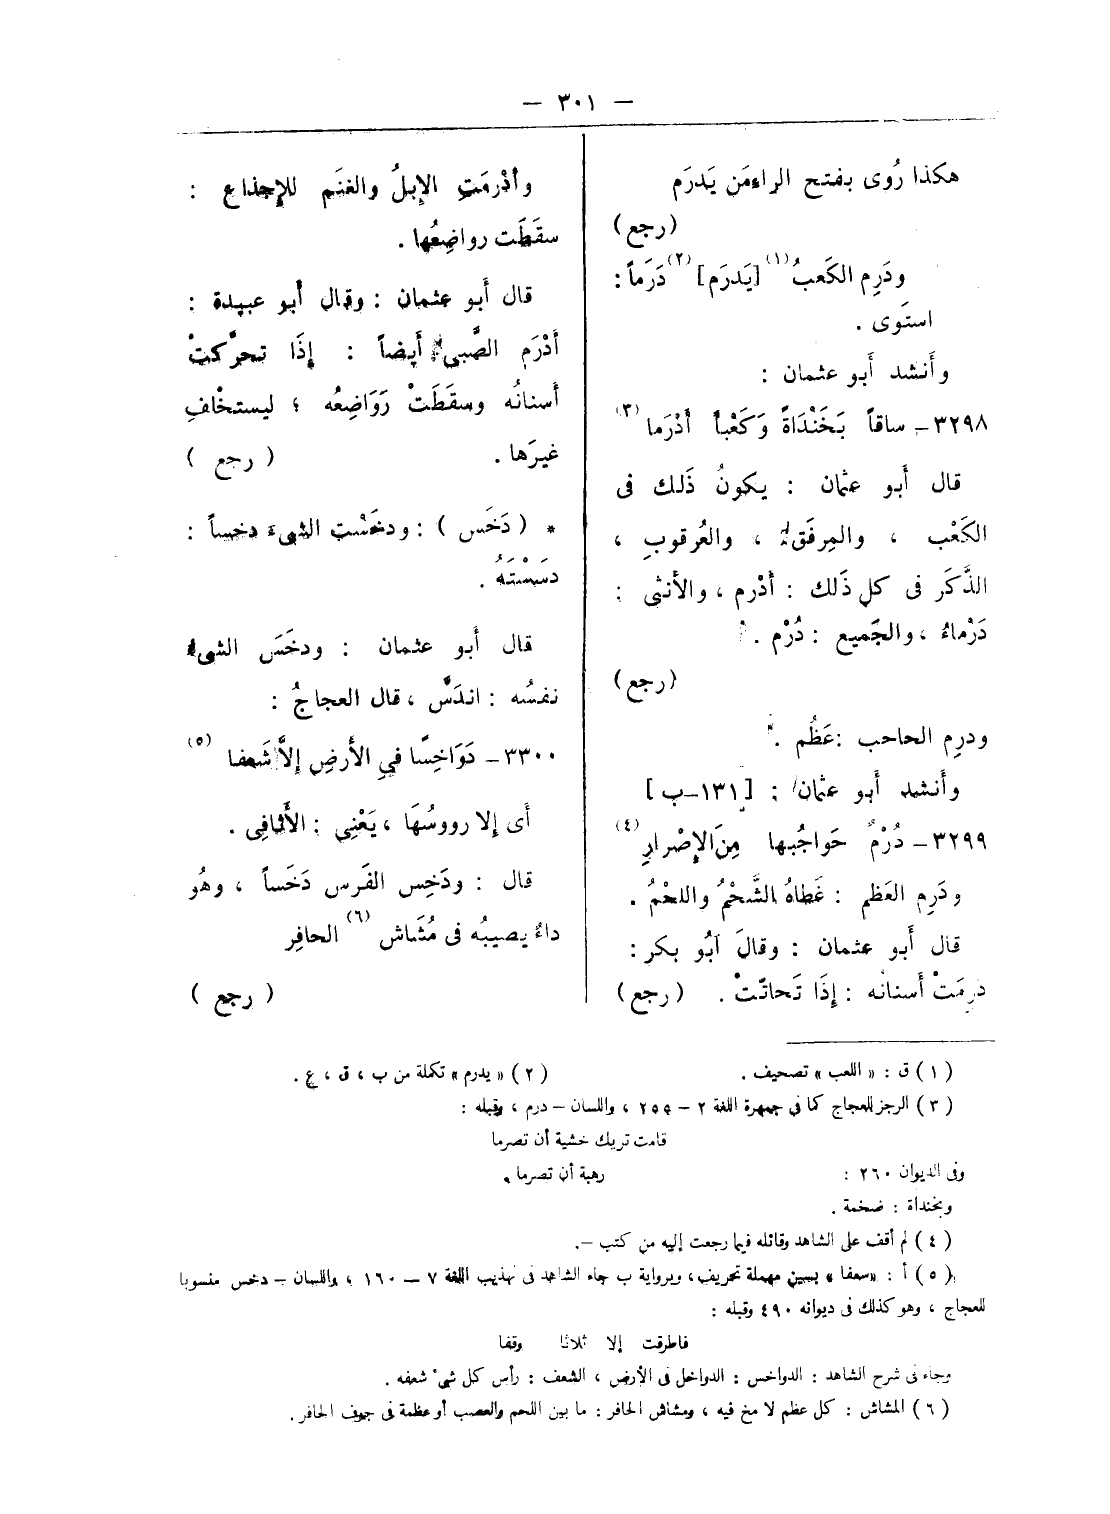 — ٣٠١ —
هكذا رُوى بفتح الراء مَن يَدرَم
(رجع)
ودَرِم الكَعبُ (١) [يَدرَم] (٢) دَرَماً :
استَوى .
وأَنشد أَبو عثمان :
٣٢٩٨ – ساقاً بَخَنْدَاةً وَكَعْباً أَدْرَما (٣)
قال أَبو عثمان : يكونُ ذَلك فى
الكَعْب ، والمِرفَق ، والعُرقوبِ ،
الذَّكَر فى كل ذَلك : أَدْرم ، والأُنثى :
دَرْماءُ ، والجَميع : دُرْم .
(رجع)
ودرِم الحاجب : عَظُم .
وأَنشد أَبو عثمان : [ ١٣١ – ب ]
٣٢٩٩ – دُرْمٌ حَواجُبها مِنَ الإِصْرارِ (٤)
ودَرِم العَظم : غَطاهُ الشَّحْمُ واللحْمُ .
قال أَبو عثمان : وقالَ أَبُو بكر :
دَرِمَتْ أَسنانُه : إِذَا تَحاتّتْ . (رجع)
وأَدْرمَتِ الإِبلُ والغنَم للإِجذاع :
سقَطَت رواضِعُها .
قال أَبو عثمان : وقال أَبو عبيدة :
أَدْرَم الصَّبىُّ أَيضاً : إِذَا تحرَّكتْ
أَسنانُه وسقَطَتْ رَوَاضِعُه ؛ ليستخْلفِ
غيرَها . ( رجع )
* ( دَخَس ) : ودخَسْت الشىء دخساً :
دَسَسْتَهُ .
قال أَبو عثمان : ودخَسَ الشىء
نفسُه : اندَسَّ ، قال العجاجُ :
٣٣٠٠ – دَوَاخِسًا فىِ الأَرضِ إِلاَّ شَعفا (٥)
أَى إِلا رووسُهَا ، يَعْنِى : الأَثافِى .
قال : ودَخِس الفَرس دَخَساً ، وهُو
داءٌ يصيبُه فى مُشَاش (٦) الحافِر
( رجع )
(١) ق : « اللعب » تصحيف .
(٢) « يدرم » تكملة من ب ، ق ، ع .
(٣) الرجز للعجاج كما فى جمهرة اللغة ٢ – ٢٥٥ ، واللسان – درم ، وقبله :
قامت تريك خشية أن تصرما
وفى الديوان ٢٦٠ : رهبة أن تصرما .
وبخنداة : ضخمة .
(٤) لم أقف على الشاهد وقائله فيما رجعت إليه من كتب –.
(٥) أ : «سعفا» بسين مهملة تحريف، وبرواية ب جاء الشاهد فى تهذيب اللغة ٧ – ١٦٠ ، واللسان – دخس منسوبا
للعجاج ، وهو كذلك فى ديوانه ٤٩٠ وقبله :
فاطرقت إلا ثلاثا وقفا
وجاء فى شرح الشاهد : الدواخس : الدواخل فى الأرض ، الشعف : رأس كل شىء شعفه .
(٦) المشاش : كل عظم لا مخ فيه ، ومشاش الحافر : ما بين اللحم والعصب أو عظمة فى جوف الحافر .